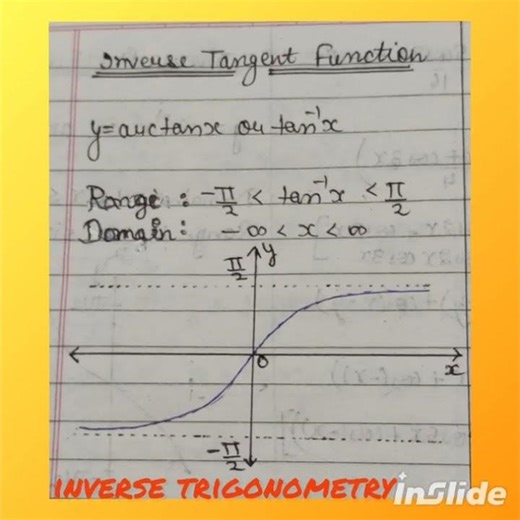 Inverse Tangent Function
y=arctanx or tan⁻¹x
Range: -π/2 < tan⁻¹x < π/2
Domain: -∞ < x < ∞
π/2
y
0
x
-π/2
INVERSE TRIGONOMETRY
inSlide